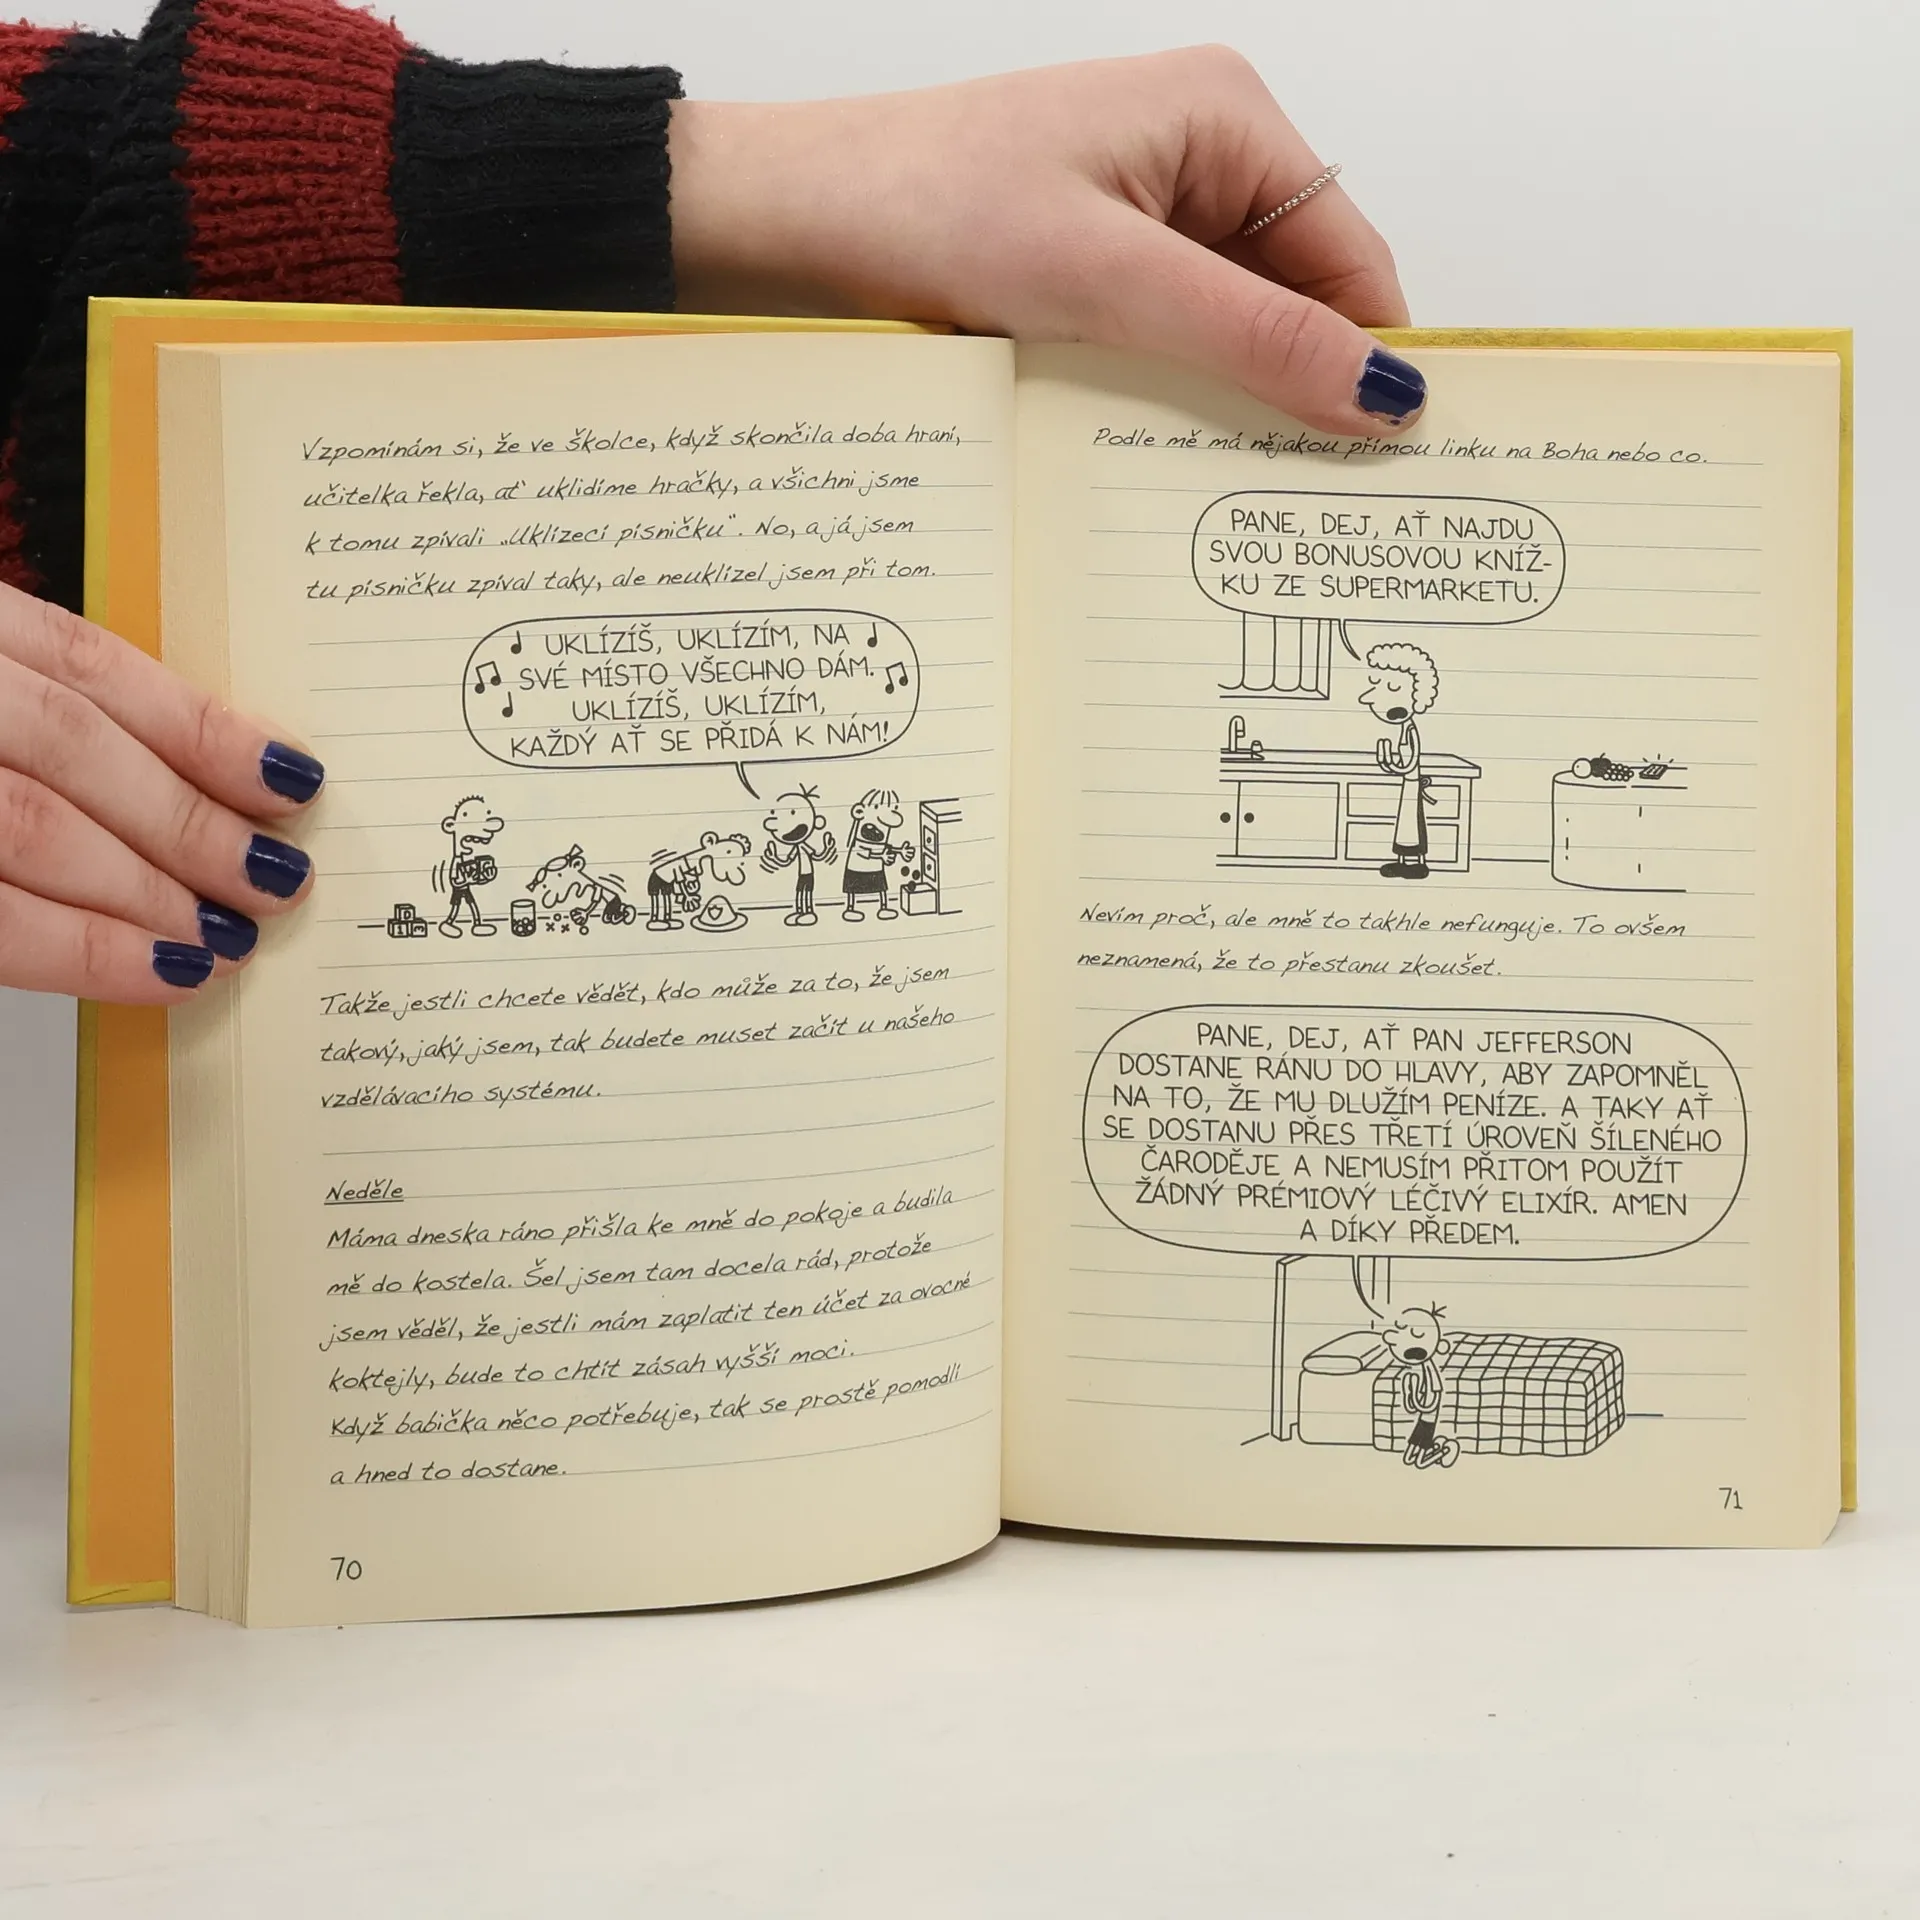 Vzpomínám si, že ve školce, když skončila doba hraní,
učitelka řekla, ať uklidíme hračky, a všichni jsme
k tomu zpívali „Uklízecí písničku“. No, a já jsem
tu písničku zpíval taky, ale neuklízel jsem při tom.
UKLÍZÍŠ, UKLÍZÍM, NA
SVÉ MÍSTO VŠECHNO DÁM.
UKLÍZÍŠ, UKLÍZÍM,
KAŽDÝ AŤ SE PŘIDÁ K NÁM!
Takže jestli chcete vědět, kdo může za to, že jsem
takový, jaký jsem, tak budete muset začít u našeho
vzdělávacího systému.
Neděle
Máma dneska ráno přišla ke mně do pokoje a budila
mě do kostela. Šel jsem tam docela rád, protože
jsem věděl, že jestli mám zaplatit ten účet za ovocné
koktejly, bude to chtít zásah vyšší moci.
Když babička něco potřebuje, tak se prostě pomodlí
a hned to dostane.
70
Podle mě má nějakou přímou linku na Boha nebo co.
PANE, DEJ, AŤ NAJDU
SVOU BONUSOVOU KNÍŽ-
KU ZE SUPERMARKETU.
Nevím proč, ale mně to takhle nefunguje. To ovšem
neznamená, že to přestanu zkoušet.
PANE, DEJ, AŤ PAN JEFFERSON
DOSTANE RÁNU DO HLAVY, ABY ZAPOMNĚL
NA TO, ŽE MU DLUŽÍM PENÍZE. A TAKY AŤ
SE DOSTANU PŘES TŘETÍ ÚROVEŇ ŠÍLENÉHO
ČARODĚJE A NEMUSÍM PŘITOM POUŽÍT
ŽÁDNÝ PRÉMIOVÝ LÉČIVÝ ELIXÍR. AMEN
A DÍKY PŘEDEM.
71